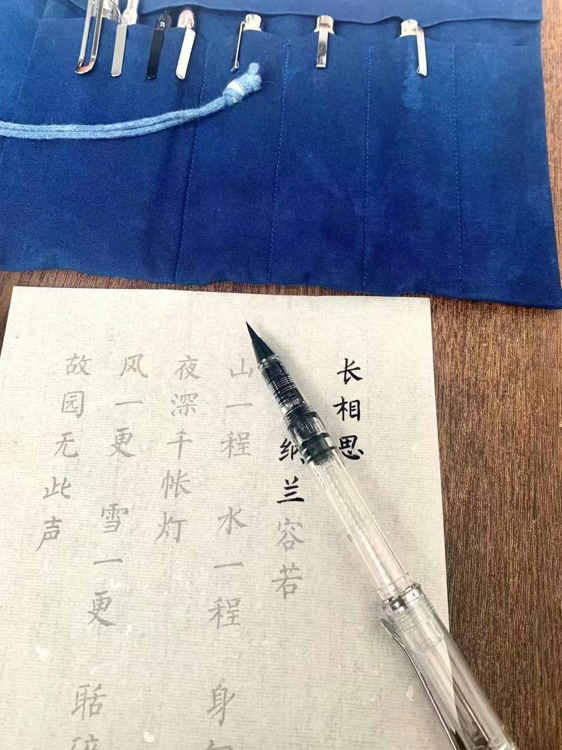 长相思
纳兰容若
山一程 水一程 身
夜深千帐灯
风一更 雪一更 聒
故园无此声